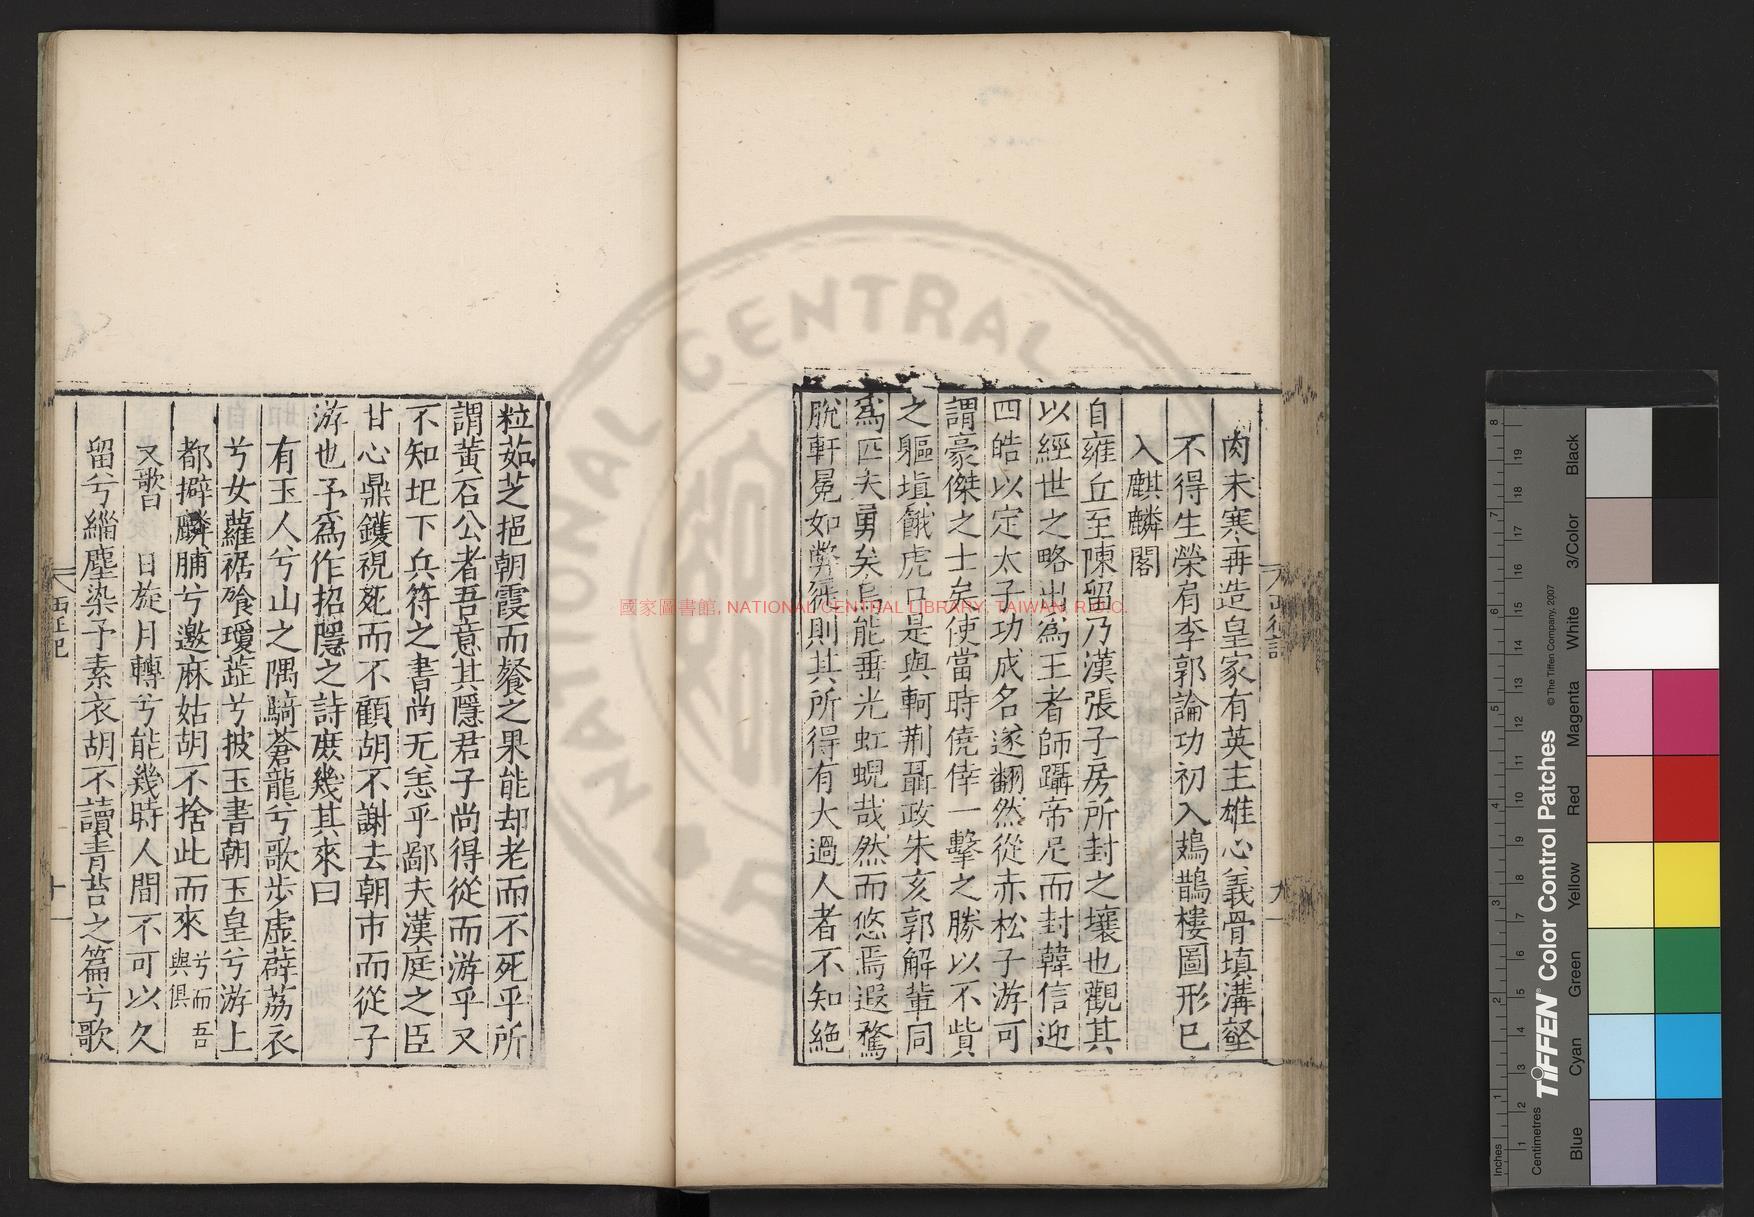 肉未寒再造皇家有英主雄心義骨填溝壑
不得生榮肩李郭論功初入鳷鵲樓圖形已
入麒麟閣
自雍丘至陳留乃漢張子房所封之壤也觀其
以經世之略出為王者師躡帝足而封韓信迎
四皓以定太子功成名遂翻然從赤松子游可
謂豪傑之士矣使當時僥倖一擊之勝以不貲
之軀塡餓虎口是與軻荆聶政朱亥郭解輩同
為匹夫勇矣烏能垂光虹蜺哉然而悠焉遐騖
脫軒冕如弊徙則其所得有大過人者不知絕
九
粒茹芝挹朝霞而餐之果能却老而不死乎所
謂黃石公者吾意其隱君子尚得從而游乎又
不知圯下兵符之書尚无恙乎鄙夫漢庭之臣
甘心鼎鑊視死而不顧胡不謝去朝市而從子
游也予為作招隱之詩庶幾其來曰
有玉人兮山之隅騎蒼龍兮歌步虛薜荔衣
兮女蘿裾飡瓊蕋兮披玉書朝玉皇兮游上
都擗麟脯兮邀麻姑胡不捨此而來兮而吾與俱
又歌曰 日旋月轉兮能幾時人間不可以久
留兮緇塵染予素衣胡不讀青苔之篇兮歌
西征記
十
國家圖書館, NATIONAL CENTRAL LIBRARY, TAIWAN, R.O.C.
NATIONAL CENTRAL
TIFFEN® Color Control Patches
© The Tiffen Company, 2007
Inches
Centimetres
Blue
Cyan
Green
Yellow
Red
Magenta
White
3/Color
Black